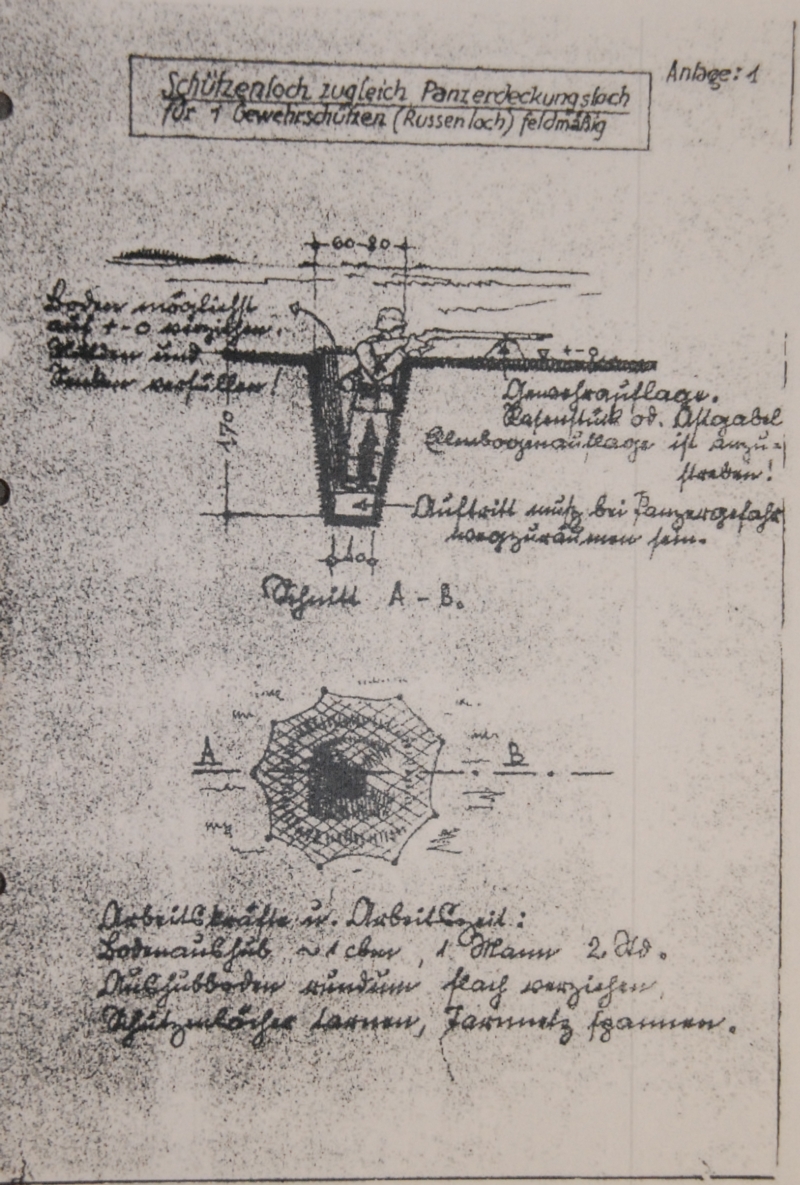 Anlage: 1
Schützenloch zugleich Panzerdeckungsloch
für 1 Gewehrschützen (Russenloch) feldmäßig
60-80
Boden möglichst
auf +-0 verziehen.
Mulden und
Senken verfüllen!
+-0
Gewehrauflage.
Rasenstück od. Astgabel
Elmbogenauflage ist anzu=
streben!
170
Auftritt muß bei Panzergefahr
wegzuräumen sein.
Schnitt A - B.
A
B
Arbeitskräfte u. Arbeitszeit:
Bodenaushub ~ 1 cbm, 1 Mann 2 Std.
Aushubboden rundum flach verziehen,
Schützenlöcher tarnen, Tarnnetz spannen.